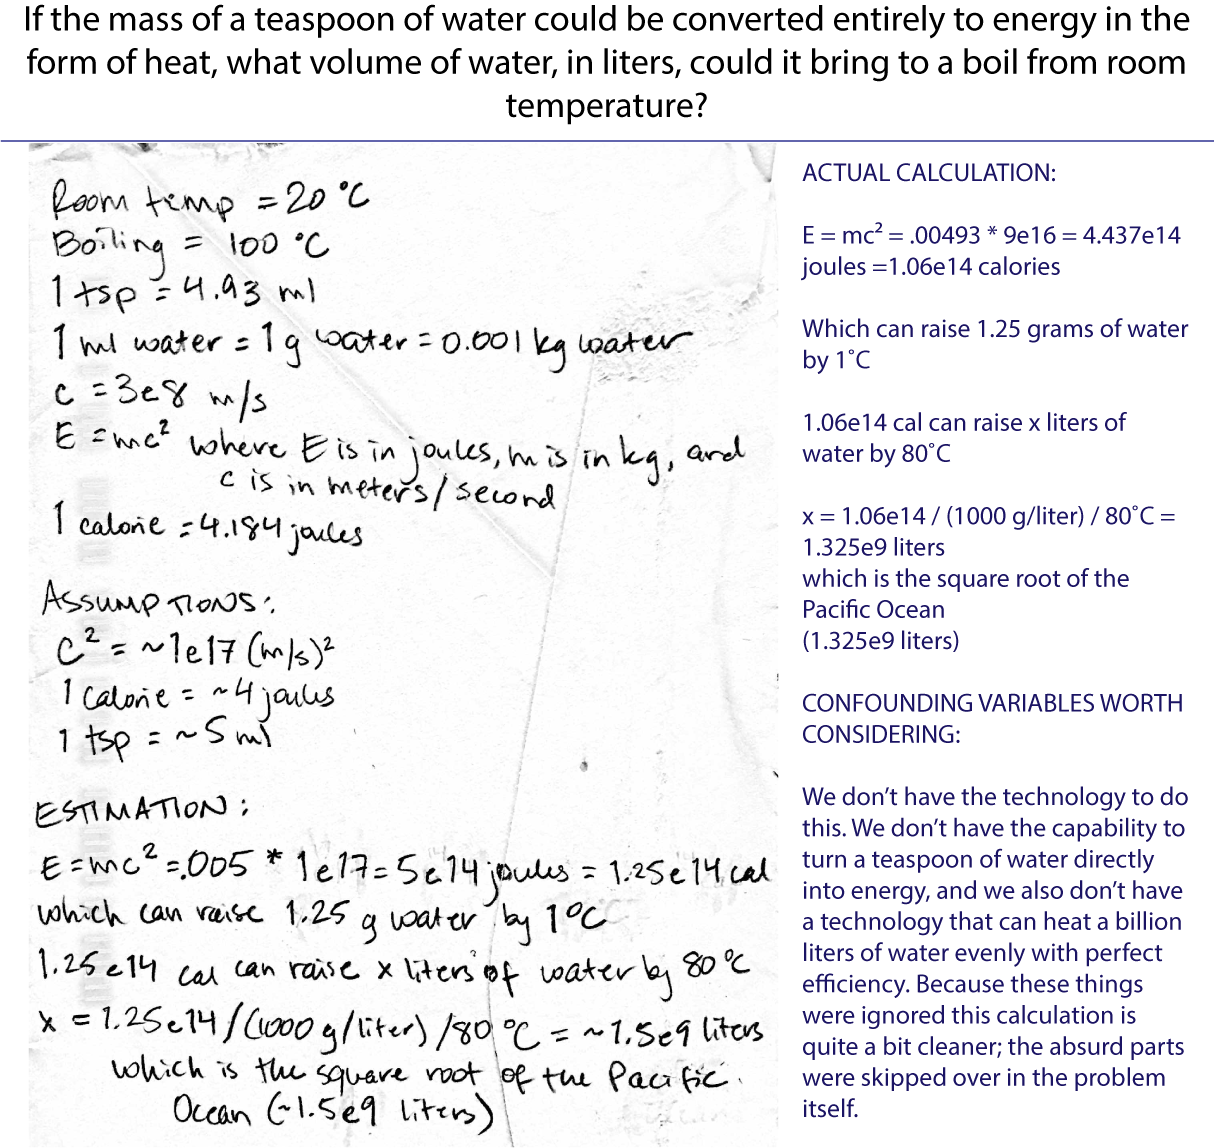 If the mass of a teaspoon of water could be converted entirely to energy in the
form of heat, what volume of water, in liters, could it bring to a boil from room
temperature?
Room temp = 20 °C
Boiling = 100 °C
1 tsp = 4.93 ml
1 ml water = 1 g water = 0.001 kg water
c = 3e8 m/s
E = mc² where E is in joules, m is in kg, and
c is in meters/second
1 calorie = 4.184 joules
ASSUMPTIONS:
C² = ~1e17 (m/s)²
1 Calorie = ~4 joules
1 tsp = ~5 ml
ESTIMATION:
E=mc²=.005 * 1e17=5e14 joules = 1.25e14 cal
which can raise 1.25 g water by 1°C
1.25e14 cal can raise x liters of water by 80°C
x = 1.25e14/(1000 g/liter)/80°C = ~1.5e9 liters
which is the square root of the Pacific
Ocean (~1.5e9 liters)
ACTUAL CALCULATION:
E = mc² = .00493 * 9e16 = 4.437e14
joules =1.06e14 calories
Which can raise 1.25 grams of water
by 1˚C
1.06e14 cal can raise x liters of
water by 80˚C
x = 1.06e14 / (1000 g/liter) / 80˚C =
1.325e9 liters
which is the square root of the
Pacific Ocean
(1.325e9 liters)
CONFOUNDING VARIABLES WORTH
CONSIDERING:
We don’t have the technology to do
this. We don’t have the capability to
turn a teaspoon of water directly
into energy, and we also don’t have
a technology that can heat a billion
liters of water evenly with perfect
efficiency. Because these things
were ignored this calculation is
quite a bit cleaner; the absurd parts
were skipped over in the problem
itself.